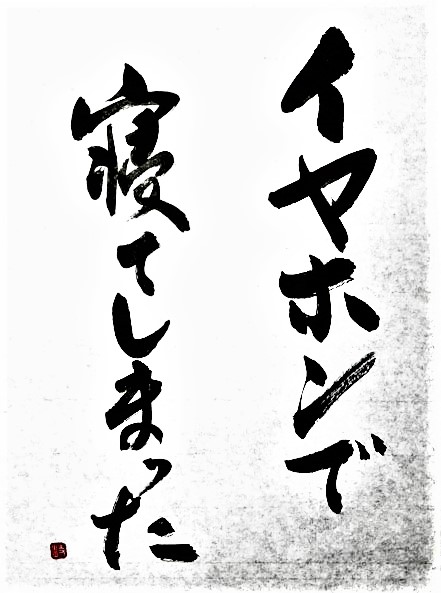 イヤホンで
寝てしまった